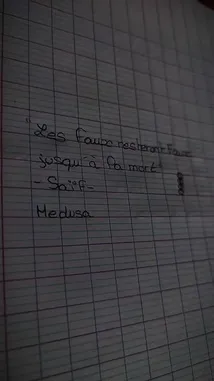 "Les faux resteront faux
jusqu'à la mort"
- Saïf -
Medusa